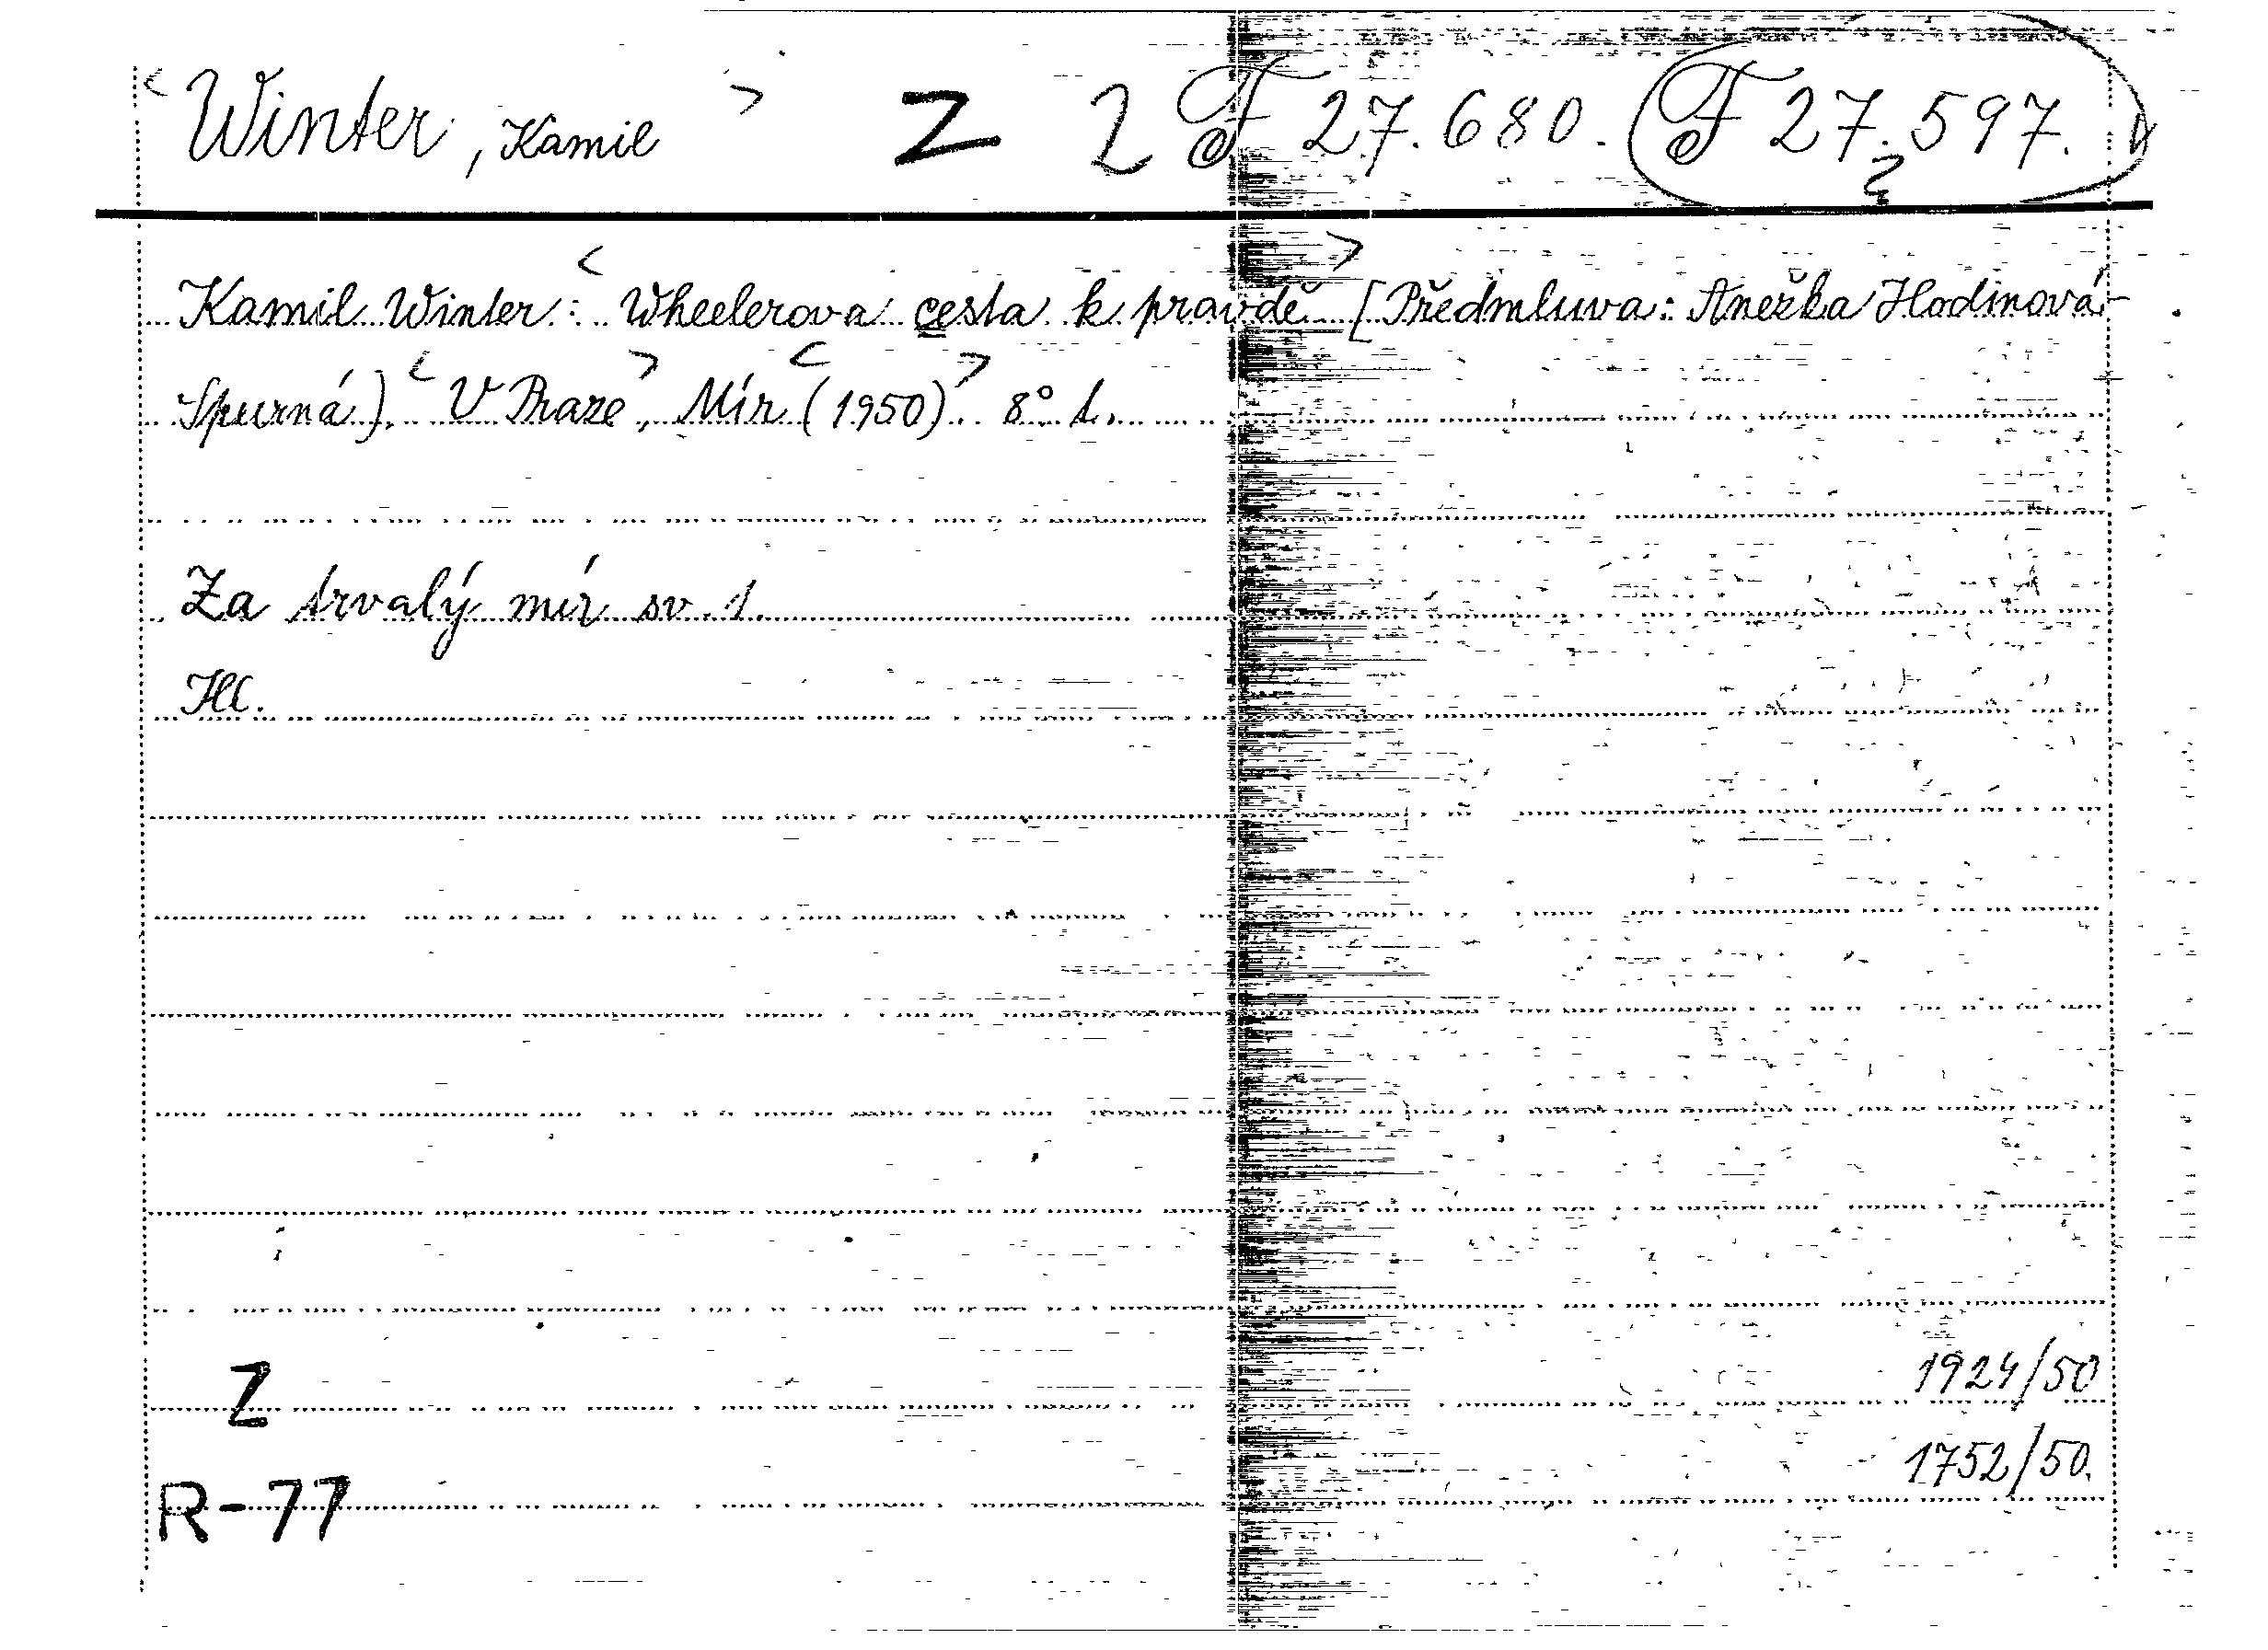 < Winter, Kamil > Z 2 F 27.680. F 27.597.
Z
< >
Kamil Winter: Wheelerova cesta k pravdě [Předmluva: Anežka Hodinová-
< > < >
Spurná]. V Praze, Mír (1950). 8° 1.
Za trvalý mír sv. 1.
Hl.
Z 1924/50
R-77 1752/50.